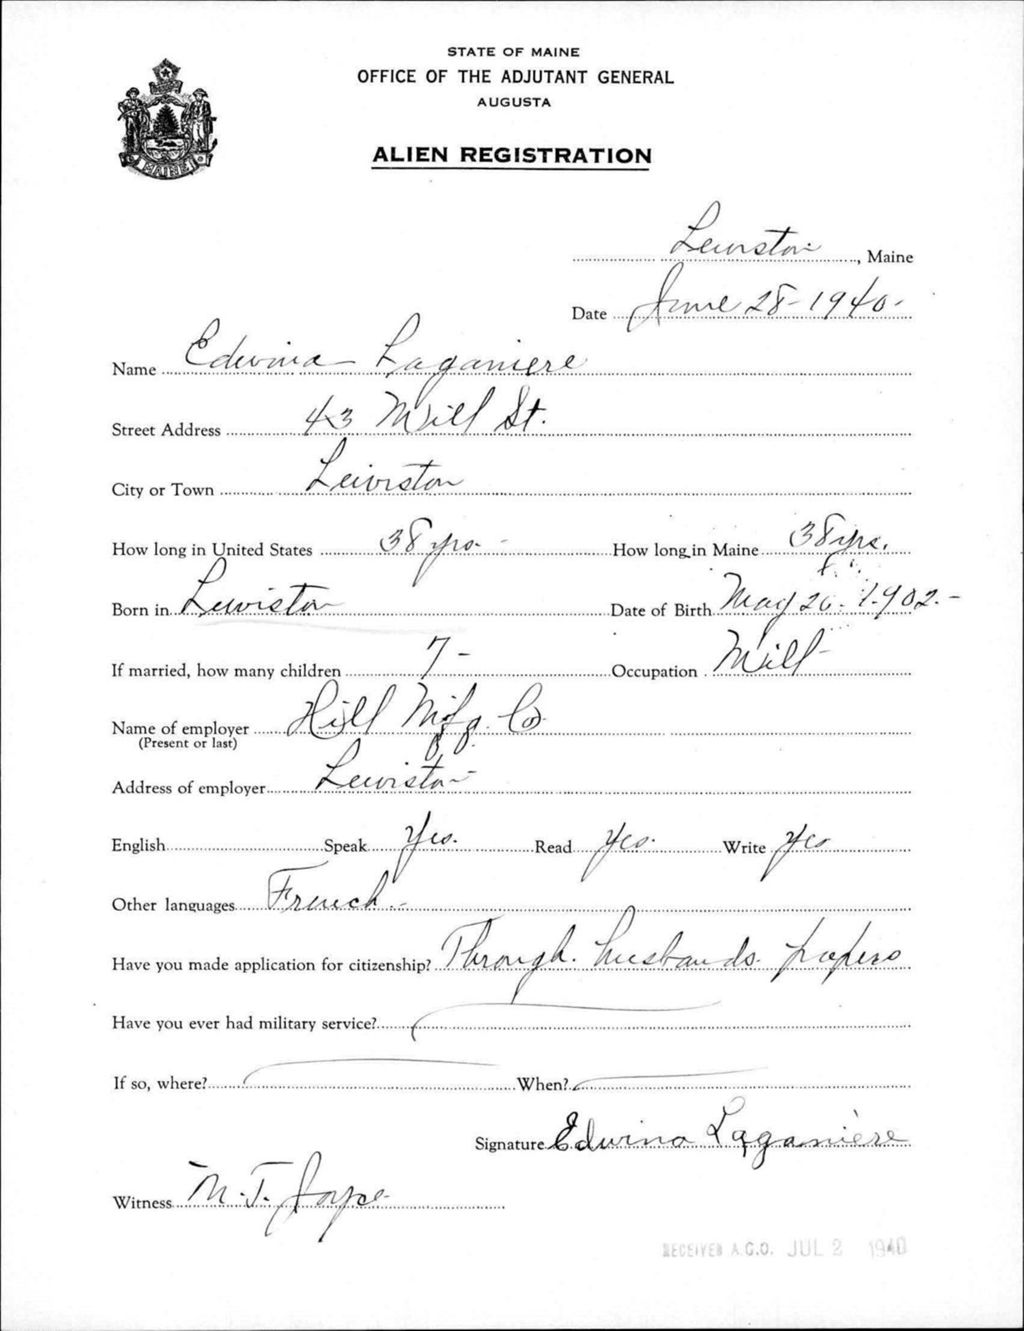 STATE OF MAINE
OFFICE OF THE ADJUTANT GENERAL
AUGUSTA
ALIEN REGISTRATION
MAINE
Lewiston, Maine
Date June 28-1940-
Name Edwina Laganiere
Street Address 43 Mill St.
City or Town Lewiston
How long in United States 38 yrs. How long in Maine 38 yrs.
Born in Lewiston Date of Birth May 26. 1902.-
If married, how many children 7- Occupation Mill-
Name of employer Hill Mfg. Co.
(Present or last)
Address of employer Lewiston
English Speak Yes. Read Yes. Write Yes
Other languages French.-
Have you made application for citizenship? Through. husbands. papers
Have you ever had military service?
If so, where? When?
Signature Edwina Laganière
Witness M.T. Joyce
RECEIVED A.G.O. JUL 2 1940